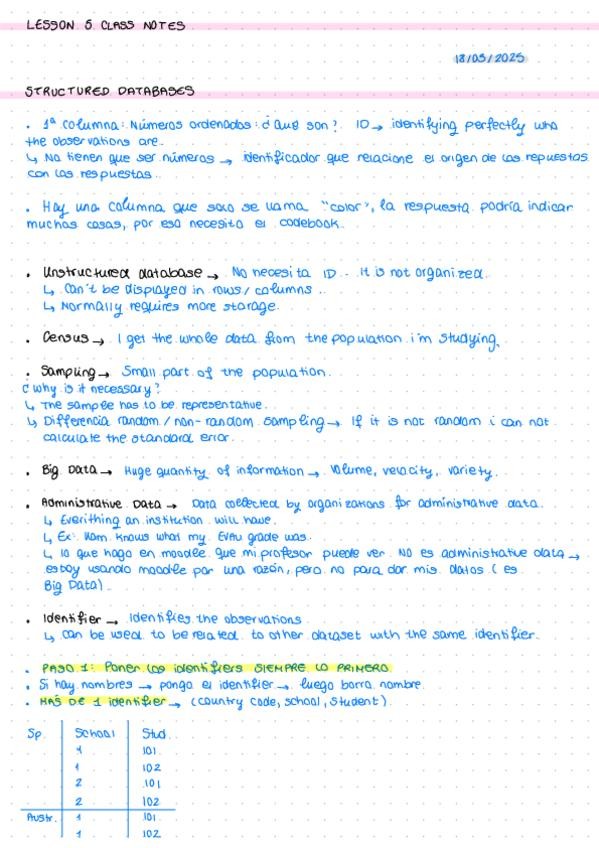 LESSON 5 CLASS NOTES
18/03/2025
STRUCTURED DATABASES
. 1ª columna: Números ordenados: ¿ Qué son? ID → identifying perfectly who
the observations are.
↳ No tienen que ser números → identificador que relacione el origen de las repuestas
con las respuestas.
. Hay una columna que solo se llama "color", la respuesta podría indicar
muchas cosas, por eso necesito el codebook.
. Unstructured database → No necesita ID .. it is not organized.
↳ Can't be displayed in rows/columns ..
↳ Normally requires more storage.
. Census → I get the whole data from the population i'm studying.
. Sampling → Small part of the population.
¿ why is it necessary?
↳ The sample has to be representative.
↳ Differencia random / non-random sampling → If it is not random i can not
calculate the standard error.
. Big Data → Huge quantity of information → volume, velocity, variety.
. Administrative Data → Data collected by organizations for administrative data.
↳ Everithing an institution will have.
↳ Ex: Uam knows what my EvAU grade was.
↳ lo que hago en moodle que mi profesor puede ver NO es administrative data →
estoy usando moodle por una razón, pero no para dar mis datos ( es
Big Data).
. Identifier → Identifies the observations
↳ can be used to be related to other dataset with the same identifier.
. PASO 1: Poner los identifiers SIEMPRE LO PRIMERO
. Si hay nombres → pongo el identifier → luego borro nombre.
. MÁS DE 1 identifier → (country code, school, student)
Sp. School Stud.
1 101
1 102
2 101
2 102
Austr. 1 101
1 102